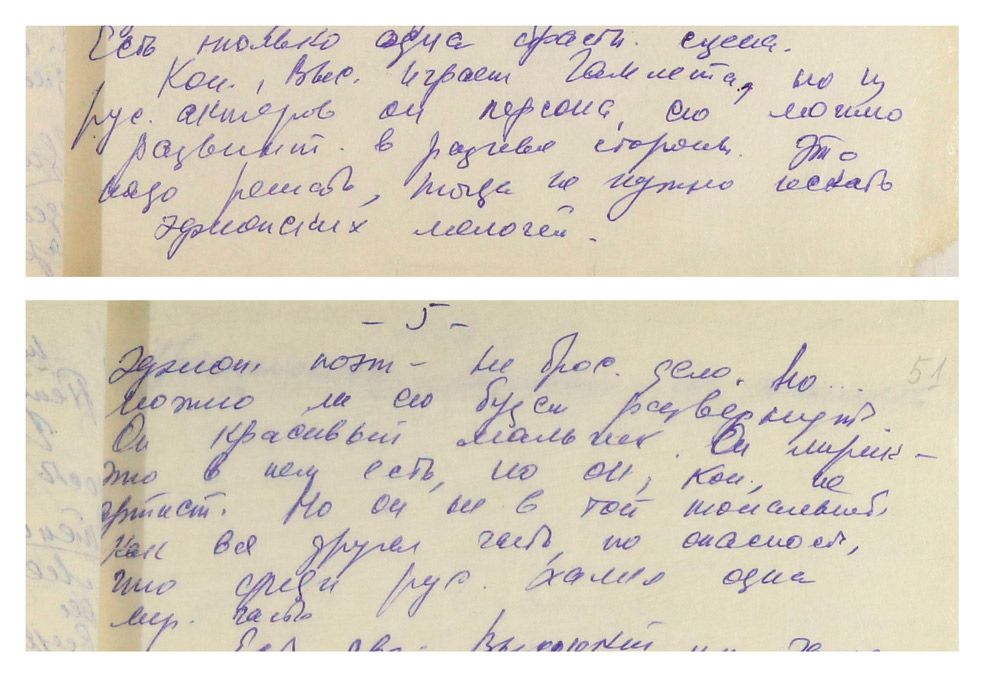 Есть только одна страстн. сцена.
Кон., Выс. играет Гамлета, но из
рус. актеров он персона, его можно
развинт. в разные стороны. Это
надо решать, тогда не нужно искать
эдмонских мелочей.
- 5 -
51
Эдмон. поэт - не брос. дело. Но...
можно ли его будет развернуть
Он красивый мальчик. Он лирик -
это в нем есть, но он, кон., не
артист. Но он не в той тональност.
как вся другая часть, но опасность,
что среди рус. одна
лир. часть